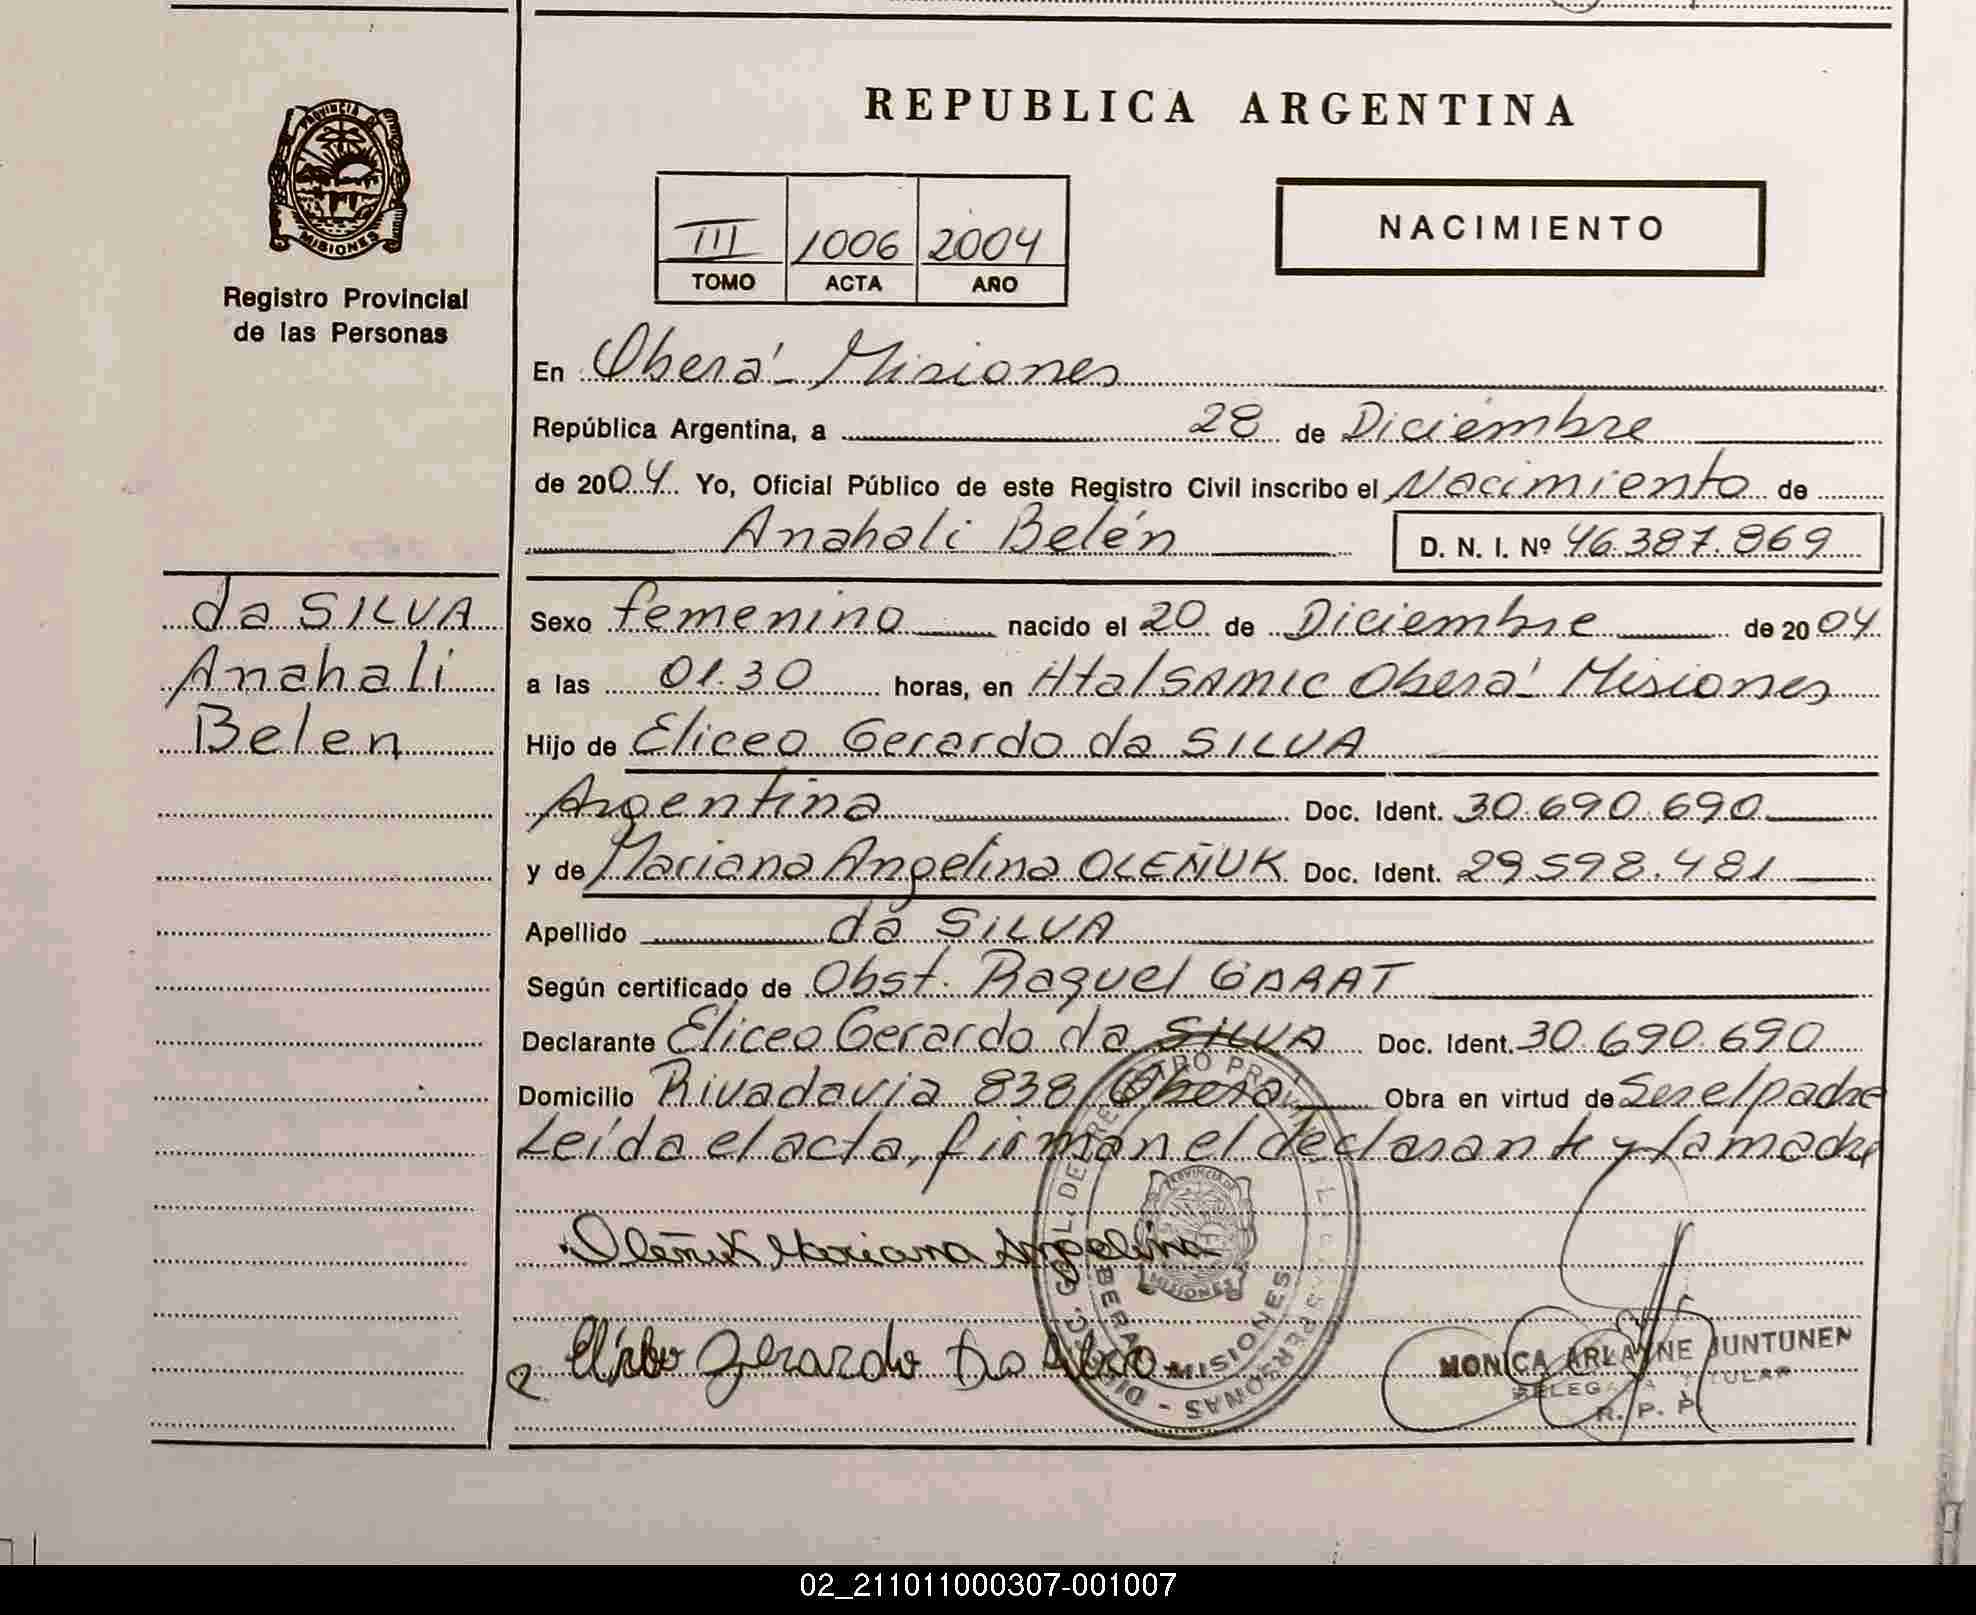 REPUBLICA ARGENTINA
PROVINCIA DE
MISIONES
Registro Provincial
de las Personas
NACIMIENTO
III 1006 2004
TOMO ACTA AÑO
En Oberá - Misiones
República Argentina, a 28 de Diciembre
de 2004 Yo, Oficial Público de este Registro Civil inscribo el Nacimiento de
Anahali Belén D. N. I. Nº 46.387.869
da SILVA
Anahali
Belen
Sexo femenino nacido el 20 de Diciembre de 2004
a las 01.30 horas, en Htal SAMIC Oberá Misiones
Hijo de Eliceo Gerardo da SILVA
Argentina Doc. Ident. 30.690.690
y de Mariana Angelina OLEÑUK Doc. Ident. 29.598.481
Apellido da SILVA
Según certificado de Obst. Raquel GARAT
Declarante Eliceo Gerardo da SILVA Doc. Ident. 30.690.690
Domicilio Rivadavia 838 Oberá Obra en virtud de Ser el padre
Leída el acta, firman el declarante y la madre
Oleñuk Mariana Angelina
Gerardo Da Silva
PROVINCIA DE
MISIONES
OBERA - MISIONES
MONICA ARLAYNE JUNTUNEN
DELEGADA TITULAR
R. P. P.
02_211011000307-001007